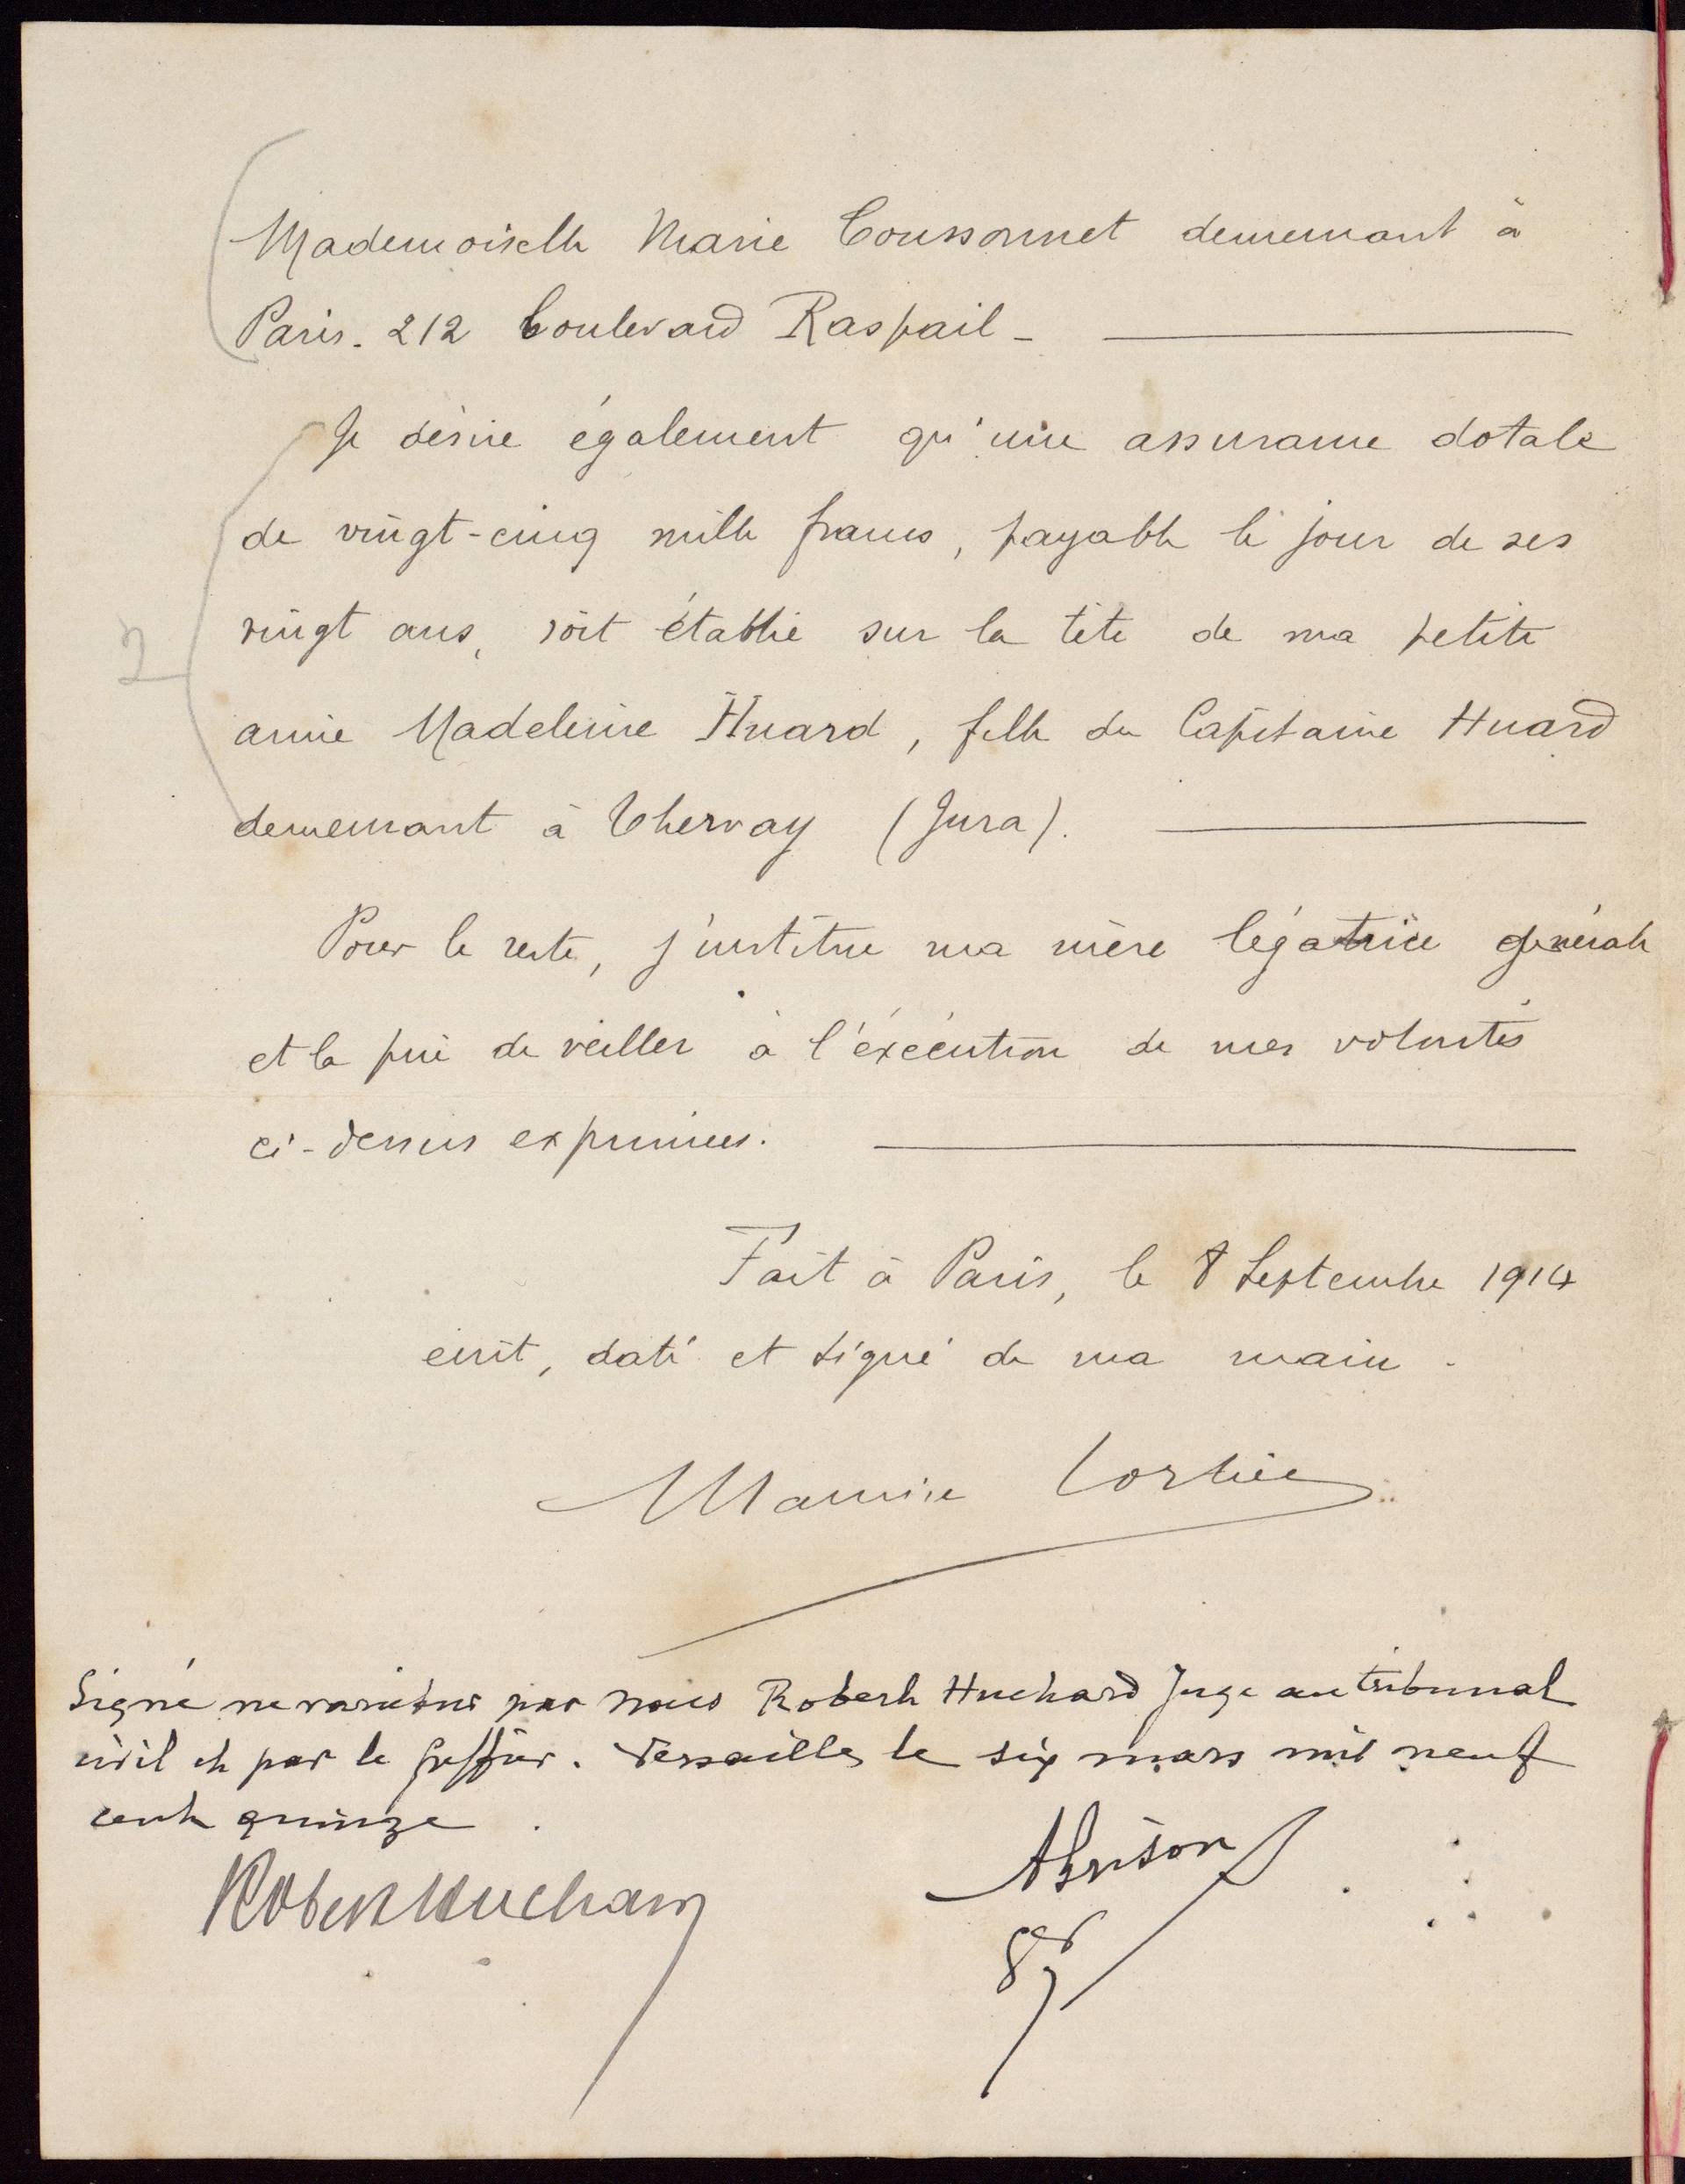 Mademoiselle Marie Coussonnet demeurant à
Paris. 212 boulevard Raspail -
Je désire également qu'une assurance dotale
de vingt-cinq mille francs, payable le jour de ses
vingt ans, soit établie sur la tête de ma petite
2
amie Madeleine Huard, fille du Capitaine Huard
demeurant à Thervay (Jura).
Pour le reste, j'institue ma mère légatrice générale
et la prie de veiller à l'éxécution de mes volontés
ci-dessus exprimées.
Fait à Paris, le 8 Septembre 1914
écrit, daté et signé de ma main.
Maurice
Signé ne varietur par nous Robert Huchard Juge au tribunal
civil et par le Greffier. Versailles le six mars mil neuf
cent quinze.
Robert Huchard